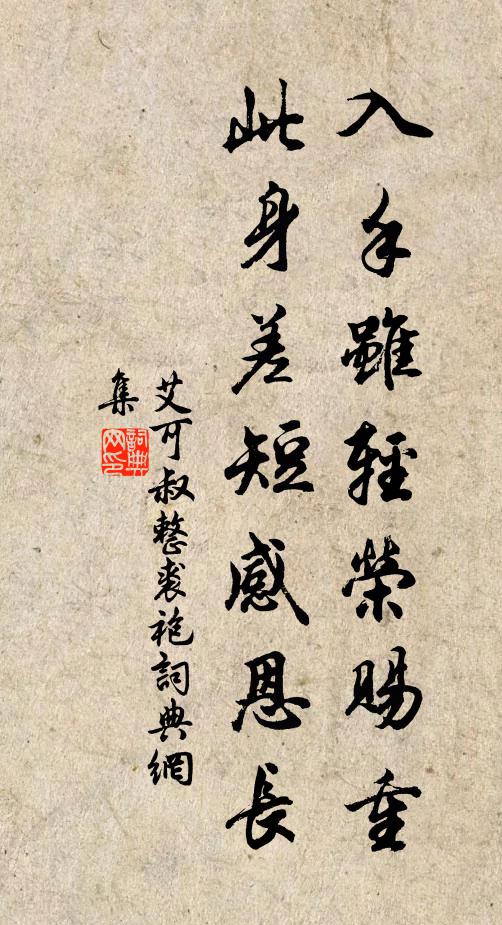 入手雖輕榮賜重
此身差短感恩長
艾可叔整裘袍詞典網
集
詞典
网印